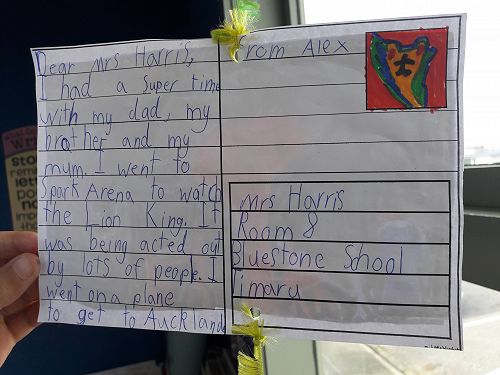 Dear Mrs Harris,
I had a super time
with my dad, my
brother and my
mum. I went to
Spark Arena to watch
the Lion King. It
was being acted out
by lots of people. I
went on a plane
to get to Auckland
From Alex
Mrs Harris
Room 8
Bluestone Shool
Timaru